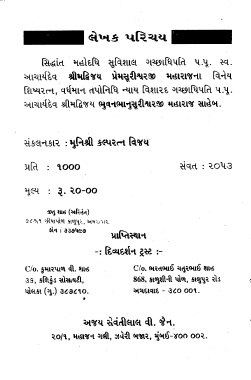 લેખક પરિચય
સિદ્ધાંત મહોદધિ સુવિશાલ ગચ્છાધિપતિ પ.પૂ. સ્વ.
આચાર્યદેવ શ્રીમદ્વિજય પ્રેમસૂરીશ્વરજી મહારાજના વિનેય
શિષ્યરત્ન, વર્ધમાન તપોનિધિ ન્યાય વિશારદ ગચ્છાધિપતિ પ.પૂ.
આચાર્યદેવ શ્રીમદ્વિજય ભુવનભાનુસૂરીશ્વરજી મહારાજ સાહેબ.
સંકલનકાર : મુનિશ્રી કલ્પરત્ન વિજય
પ્રતિ : ૧૦૦૦ સંવત : ૨૦૫૩
મૂલ્ય : રૂ. ૨૦-૦૦
પ્રાપ્તિસ્થાન
-: દિવ્યદર્શન ટ્રસ્ટ :-
C/o. કુમારપાળ વી. શાહ
૩૬, કલિકુંડ સોસાયટી,
ધોલકા (ગુ.) ૩૮૭૮૧૦.
C/o. ભરતભાઈ ચતુરભાઈ શાહ
868, કાળુશીની પોળ, કાળુપુર રોડ
અમદાવાદ - ૩૮૦ ૦૦૧.
અજય સેવંતીલાલ વી. જૈન.
૨૦/૧, મહાજન ગલી, ઝવેરી બજાર, મુંબઈ-૪૦૦ ૦૦૨.